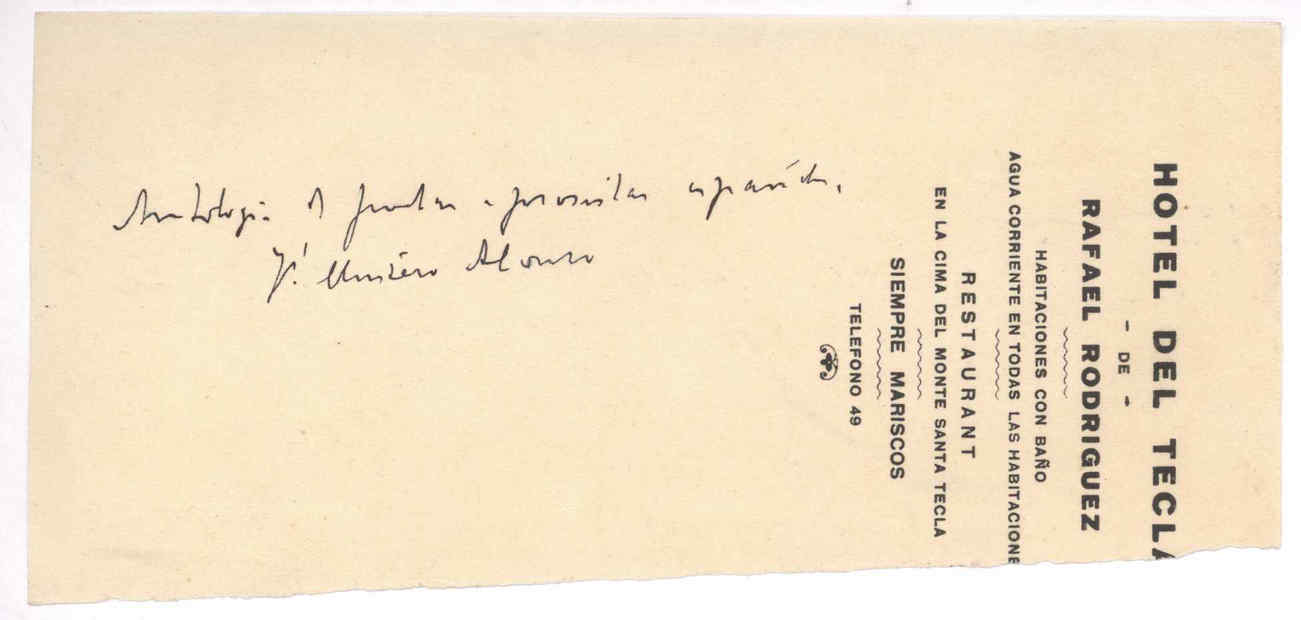 Antología de poetas y prosistas españoles.
Alonso
HOTEL DEL TECLA
- DE -
RAFAEL RODRIGUEZ
HABITACIONES CON BAÑO
AGUA CORRIENTE EN TODAS LAS HABITACIONE
RESTAURANT
EN LA CIMA DEL MONTE SANTA TECLA
SIEMPRE MARISCOS
TELEFONO 49